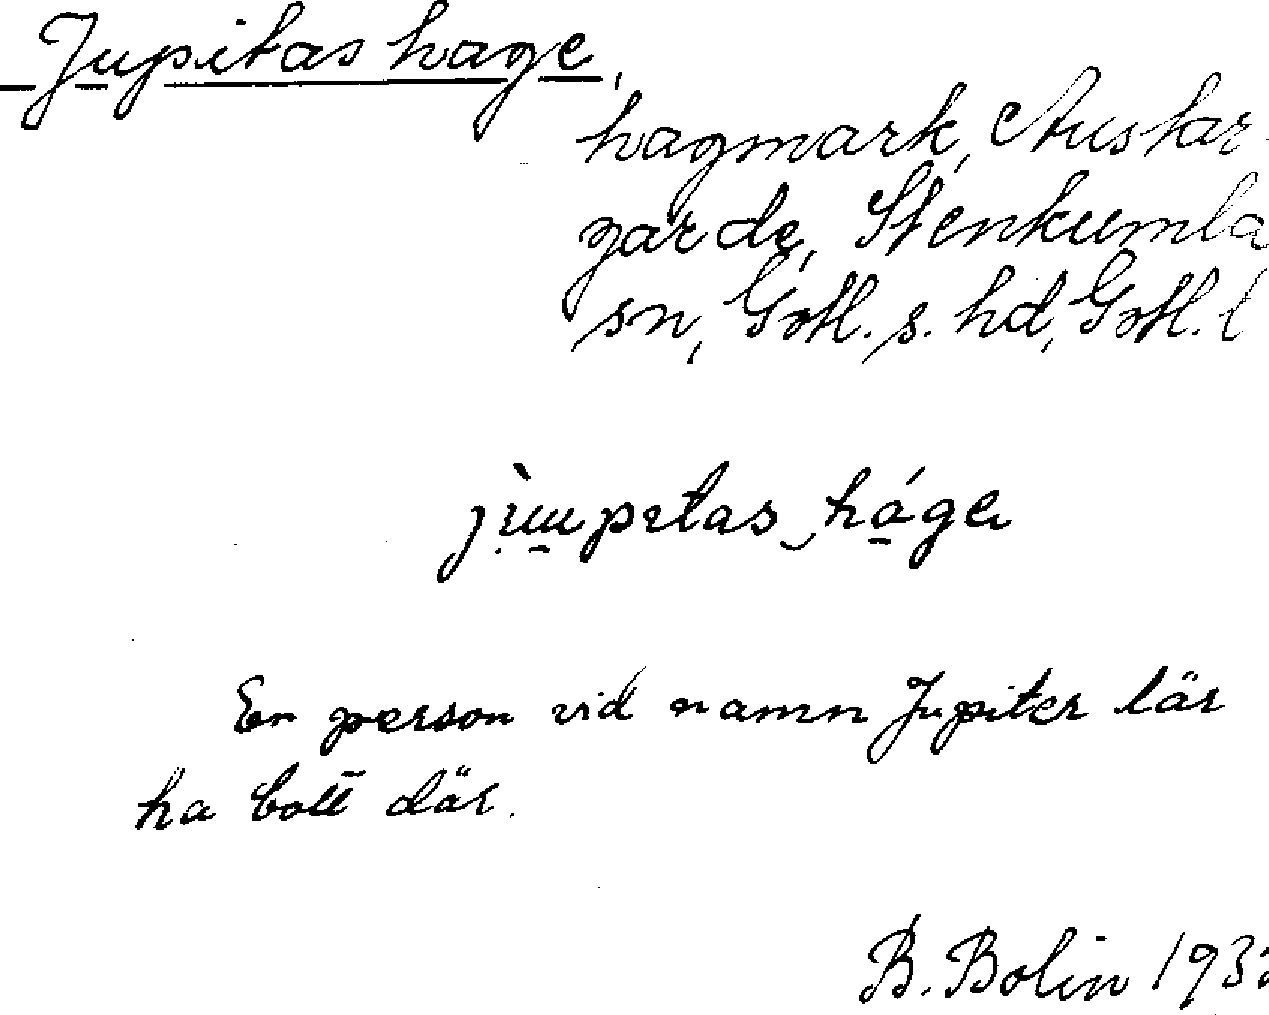 Jupitas hage,
hagmark, Auskar-
garde, Stenkumla
sn, Gotl. s. hd, Gotl. l
hage
En person vid namn Jupiter lär
ha bott där.
B. Bolin 193